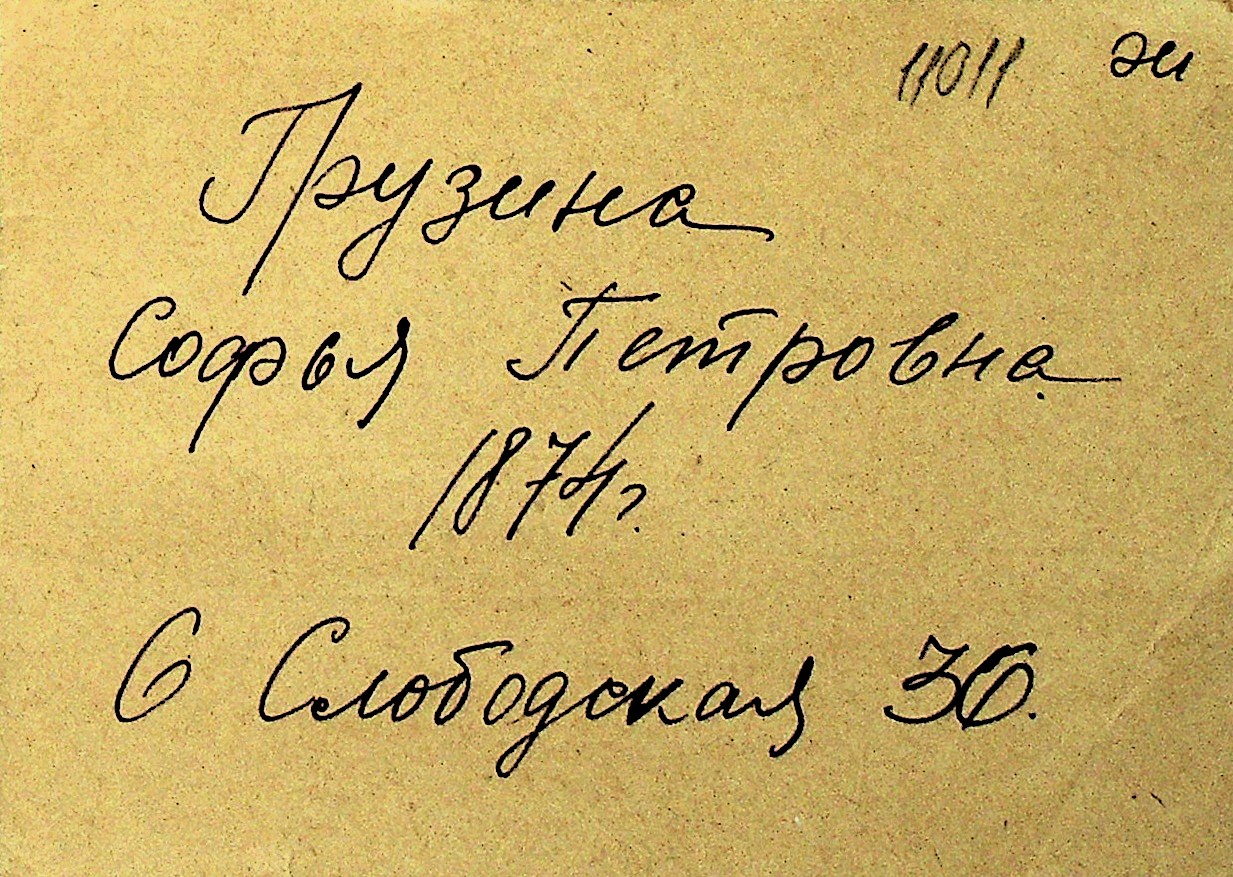 11011 эи
Грузина
Софья Петровна
1874г.
6 Слободская 36.